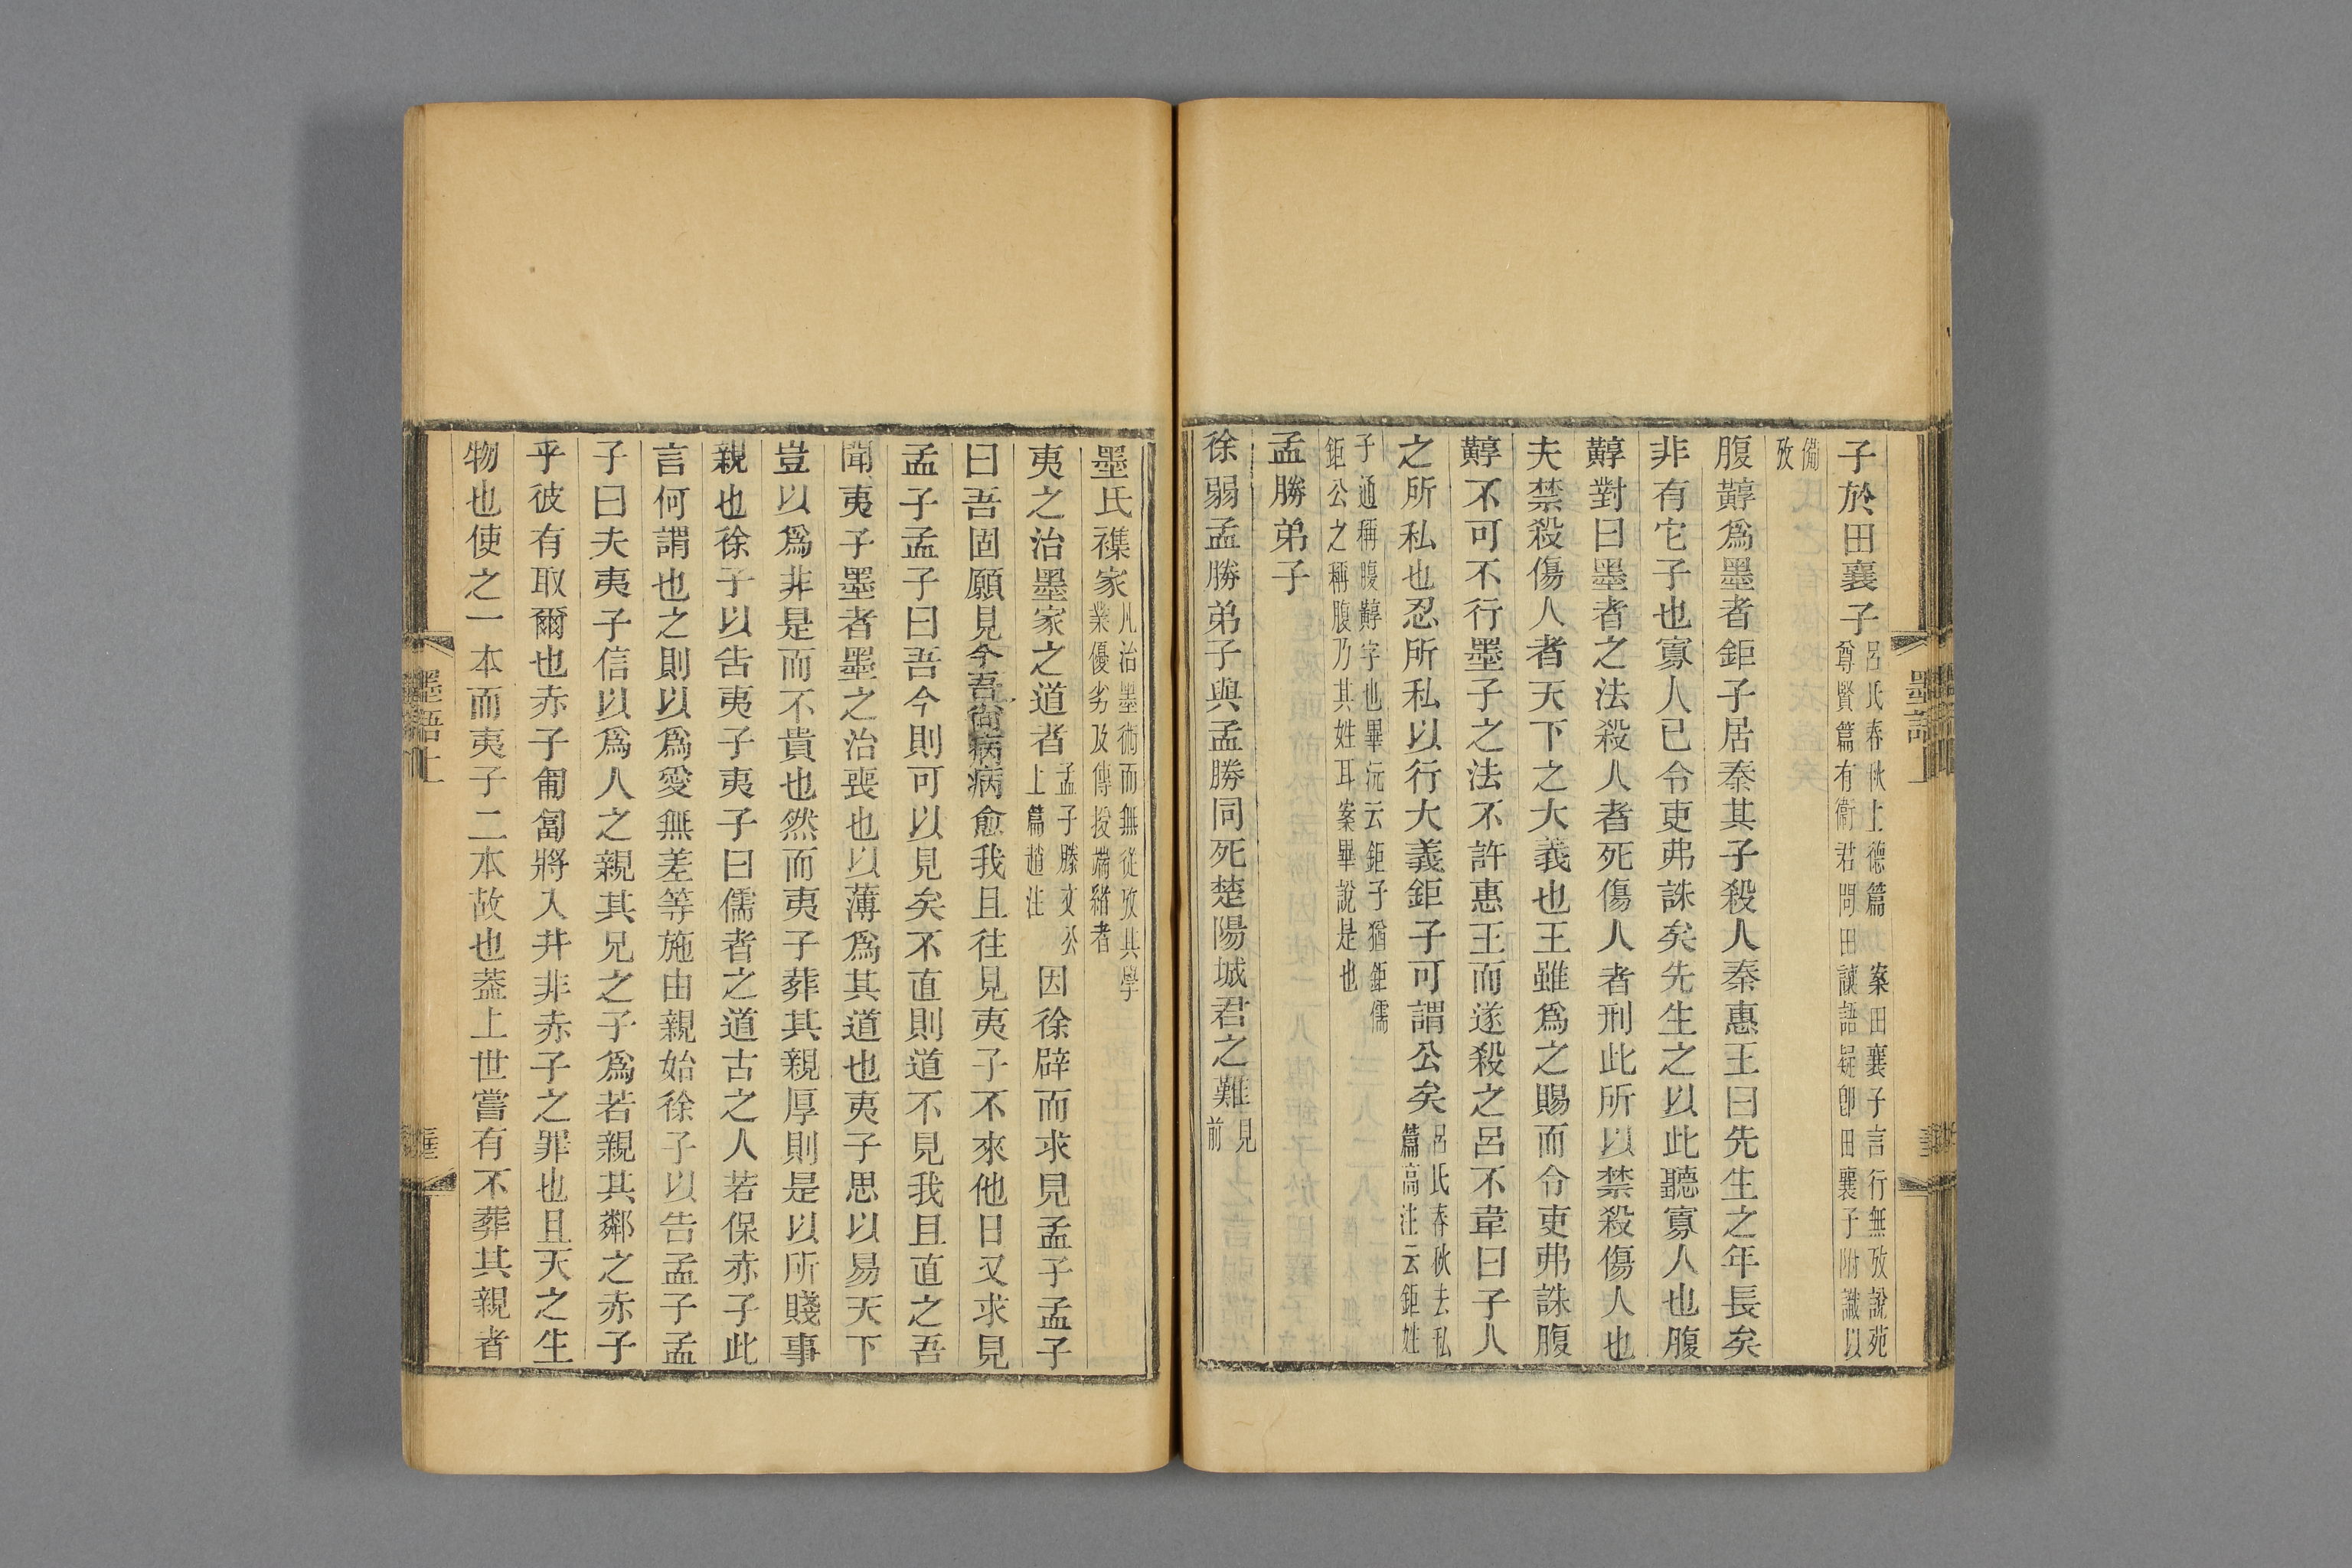 子於田襄子呂氏春秋上德篇 案田襄子言行無攷說苑尊賢篇有衞君問田讓語疑卽田襄子附識以
備攷
腹䵍爲墨者鉅子居秦其子殺人秦惠王曰先生之年長矣
非有它子也寡人已令吏弗誅矣先生之以此聽寡人也腹
䵍對曰墨者之法殺人者死傷人者刑此所以禁殺傷人也
夫禁殺傷人者天下之大義也王雖爲之賜而令吏弗誅腹
䵍不可不行墨子之法不許惠王而遂殺之呂不韋曰子人
之所私也忍所私以行大義鉅子可謂公矣呂氏春秋去私篇高注云鉅姓
子通稱腹䵍字也畢沅云鉅子猶鉅儒鉅公之稱腹乃其姓耳案畢說是也
孟勝弟子
徐弱孟勝弟子與孟勝同死楚陽城君之難見前
墨氏襍家凡治墨術而無從攷其學業優劣及傳授端緒者
夷之治墨家之道者孟子滕文公上篇趙注因徐辟而求見孟子孟子
曰吾固願見今吾尙病病愈我且往見夷子不來他日又求見
孟子孟子曰吾今則可以見矣不直則道不見我且直之吾
聞夷子墨者墨之治喪也以薄爲其道也夷子思以易天下
豈以爲非是而不貴也然而夷子葬其親厚則是以所賤事
親也徐子以告夷子夷子曰儒者之道古之人若保赤子此
言何謂也之則以爲愛無差等施由親始徐子以告孟子孟
子曰夫夷子信以爲人之親其兄之子爲若親其鄰之赤子
乎彼有取爾也赤子匍匐將入井非赤子之罪也且天之生
物也使之一本而夷子二本故也蓋上世嘗有不葬其親者
墨語上